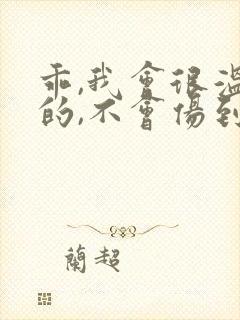 乖,我會很溫
的,不會傷到
蘭超